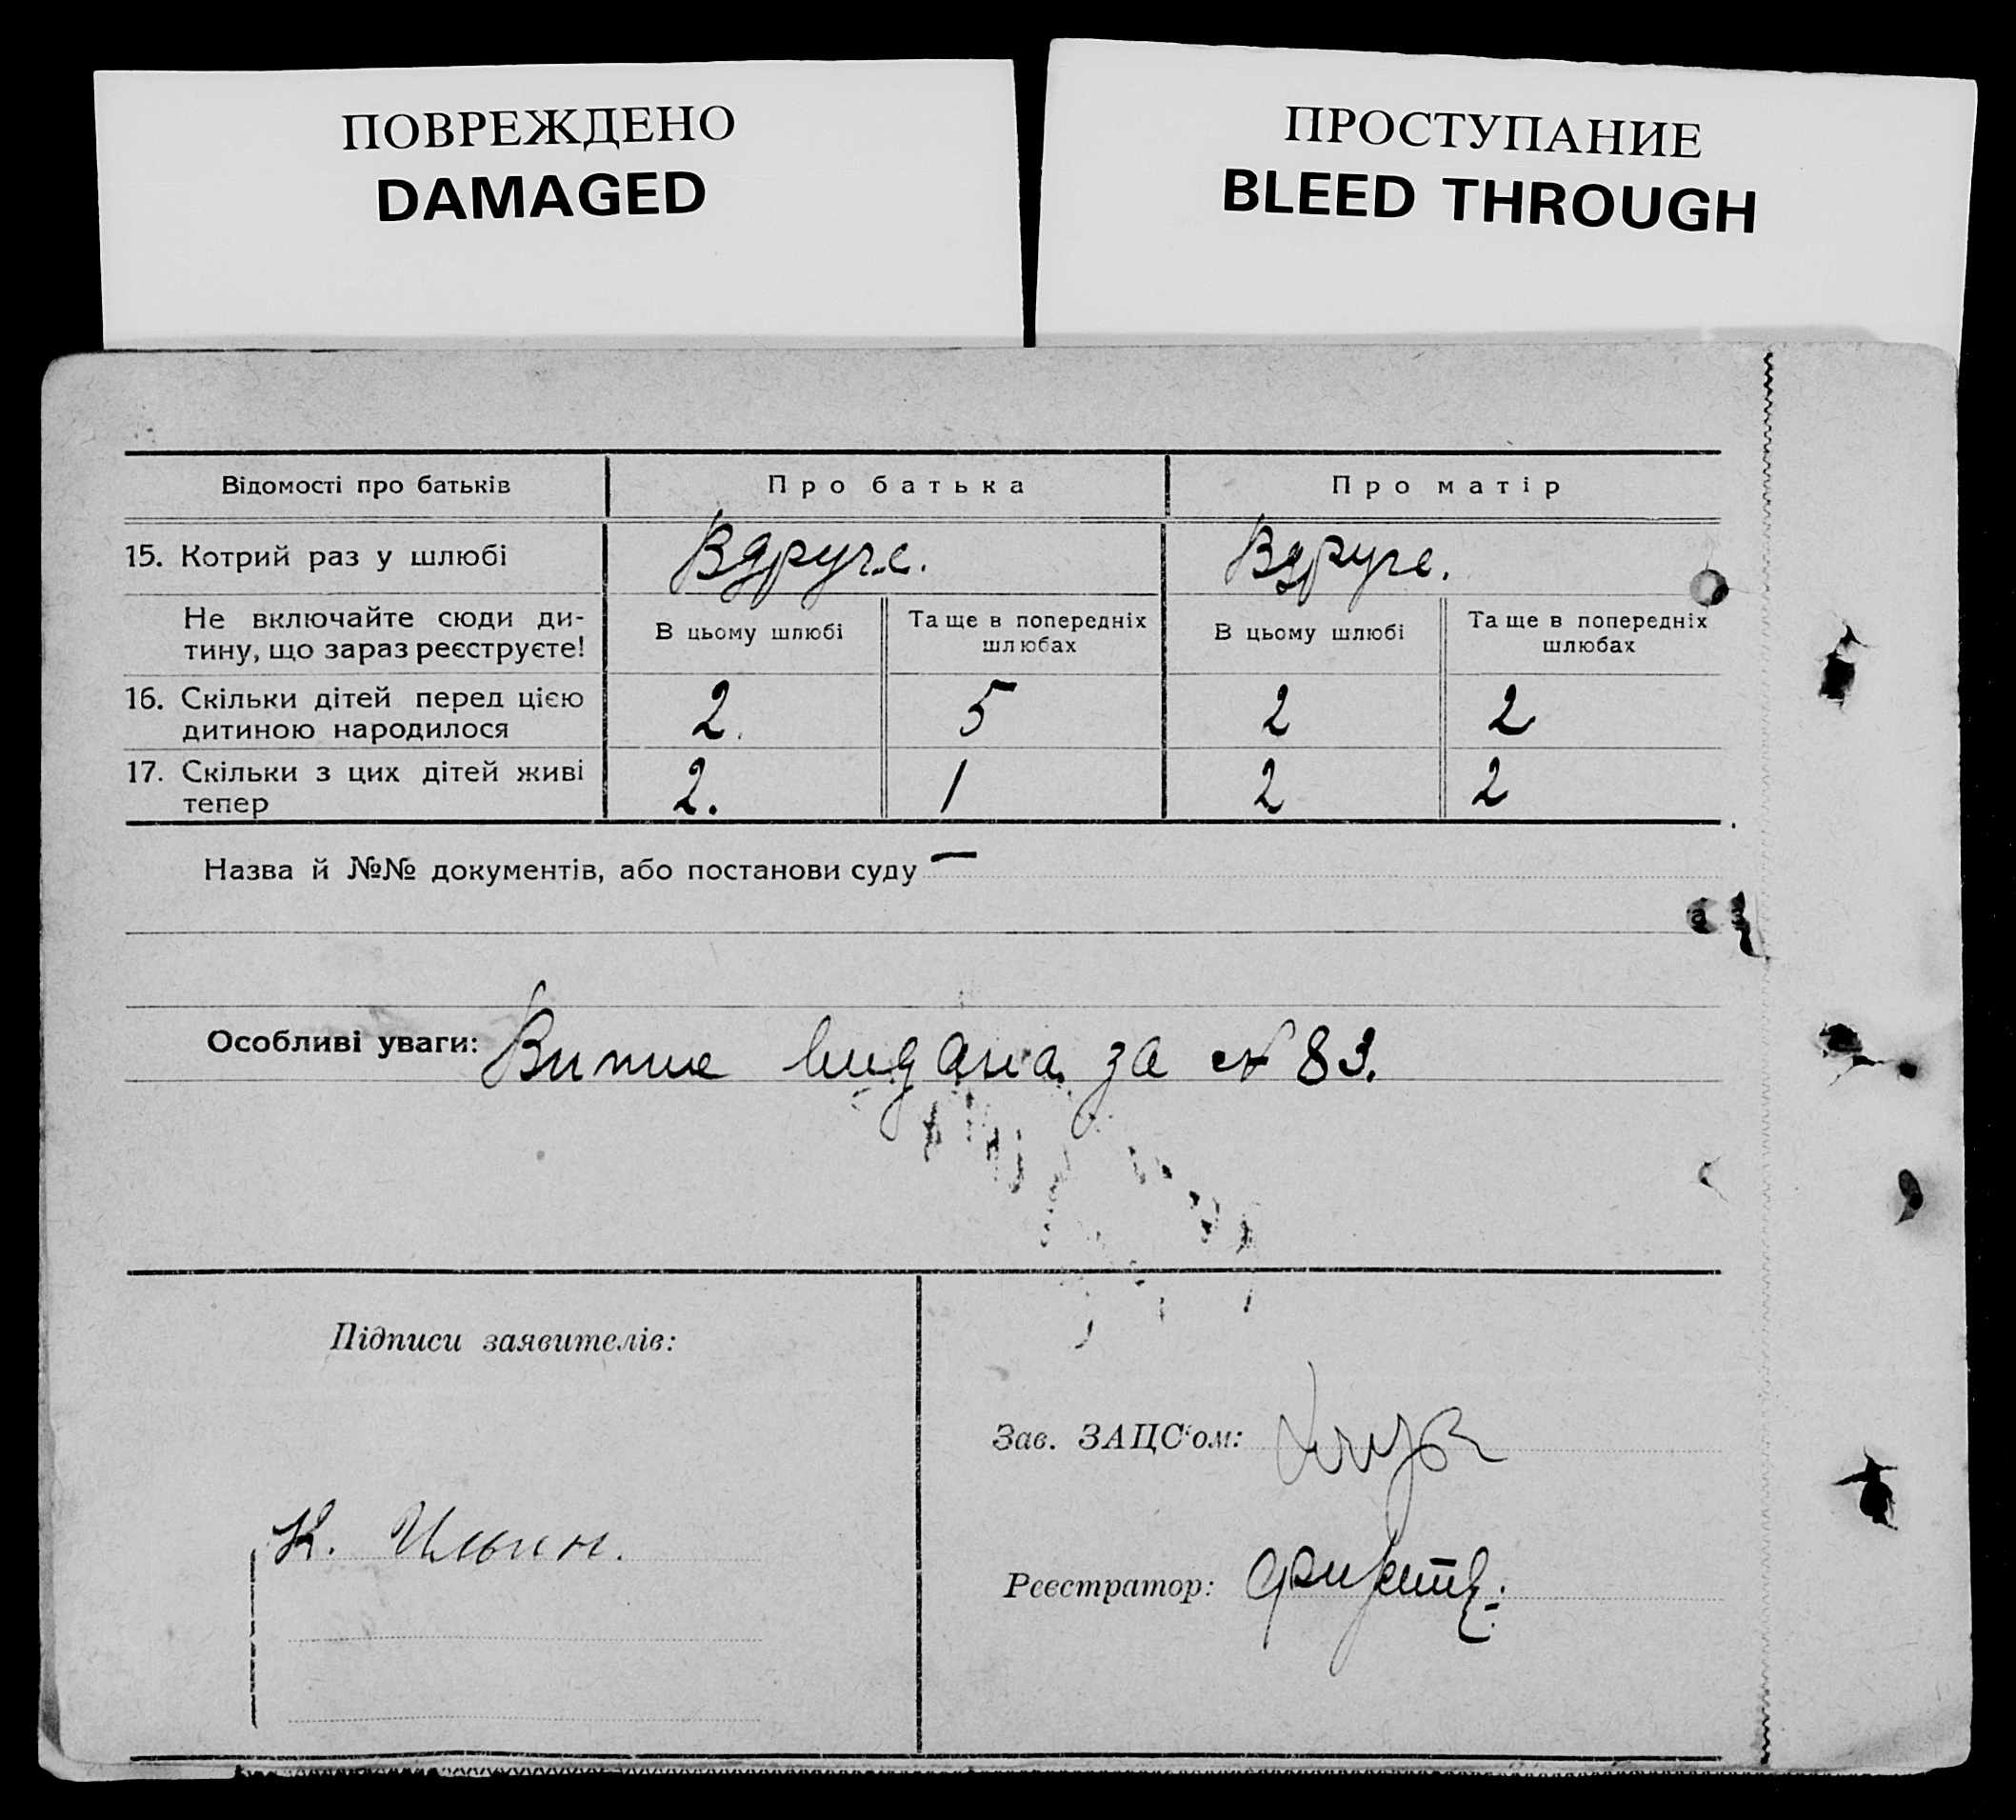 ПОВРЕЖДЕНО
DAMAGED
ПРОСТУПАНИЕ
BLEED THROUGH
Відомості про батьків
Про батька
Про матір
15. Котрий раз у шлюбі
Вдруге.
Вдруге.
Не включайте сюди ди-
тину, що зараз реєструєте!
В цьому шлюбі
Та ще в попередніх
шлюбах
В цьому шлюбі
Та ще в попередніх
шлюбах
16. Скільки дітей перед цією
дитиною народилося
2.
5
2
2
17. Скільки з цих дітей живі
тепер
2.
1
2
2
Назва й №№ документів, або постанови суду —
Особливі уваги: видана за № 83.
Підписи заявителів:
Зав. ЗАЦС'ом:
К. Ильин.
Реєстратор: